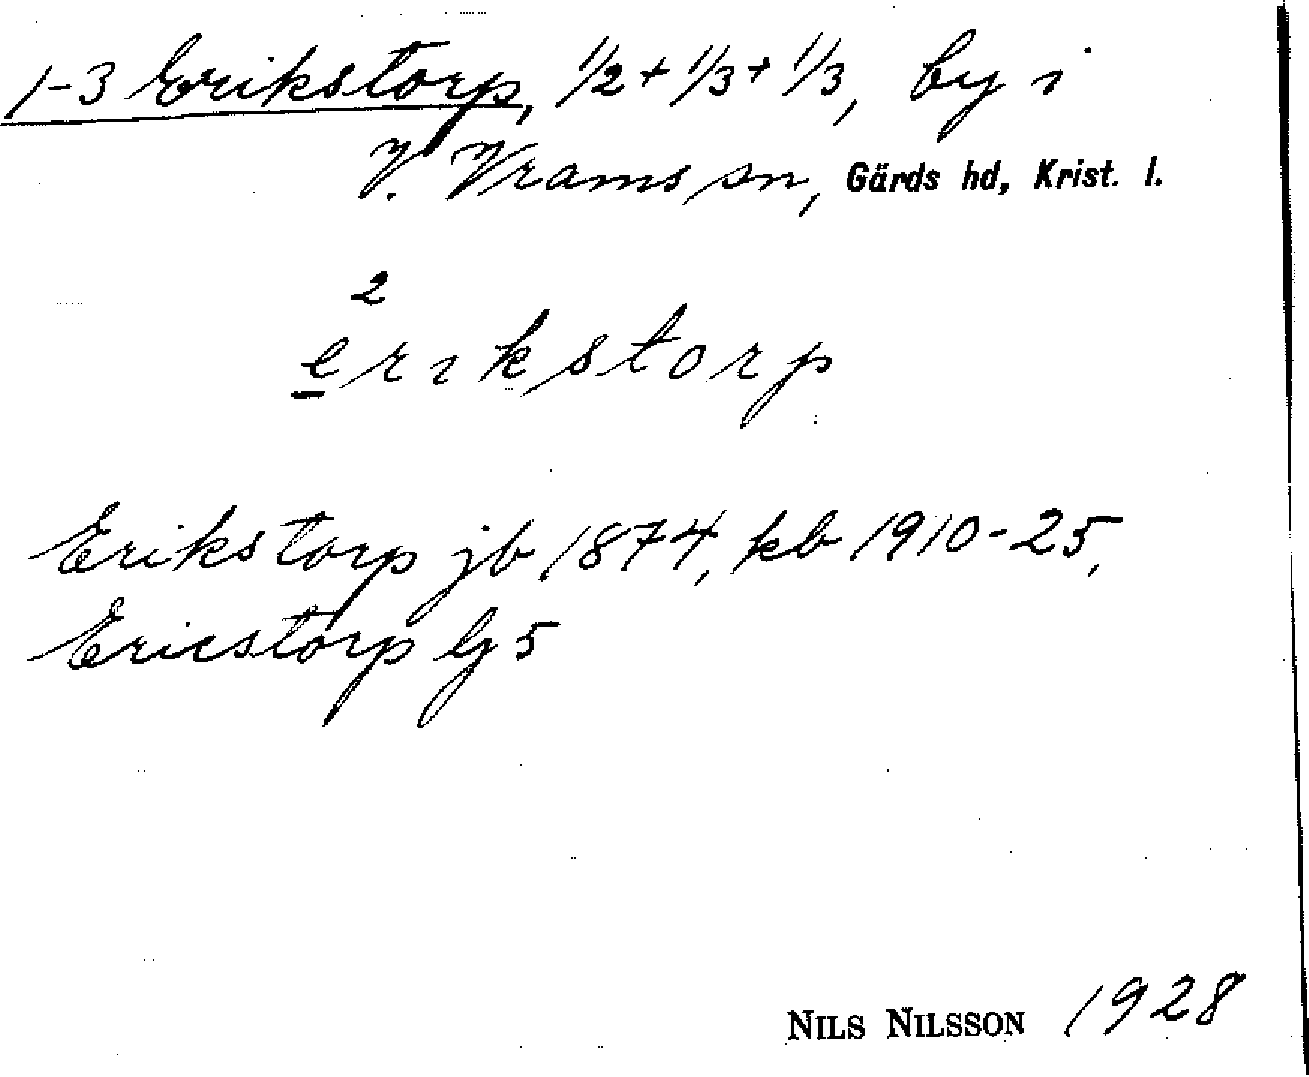 1-3 Erikstorp, 1/2 + 1/3 + 1/3, by i
V. Vrams sn, Gärds hd, Krist. l.
2
erikstorp
Erikstorp jb 1874, kb 1910-25,
Ericstorp Gj 5
NILS NILSSON 1928